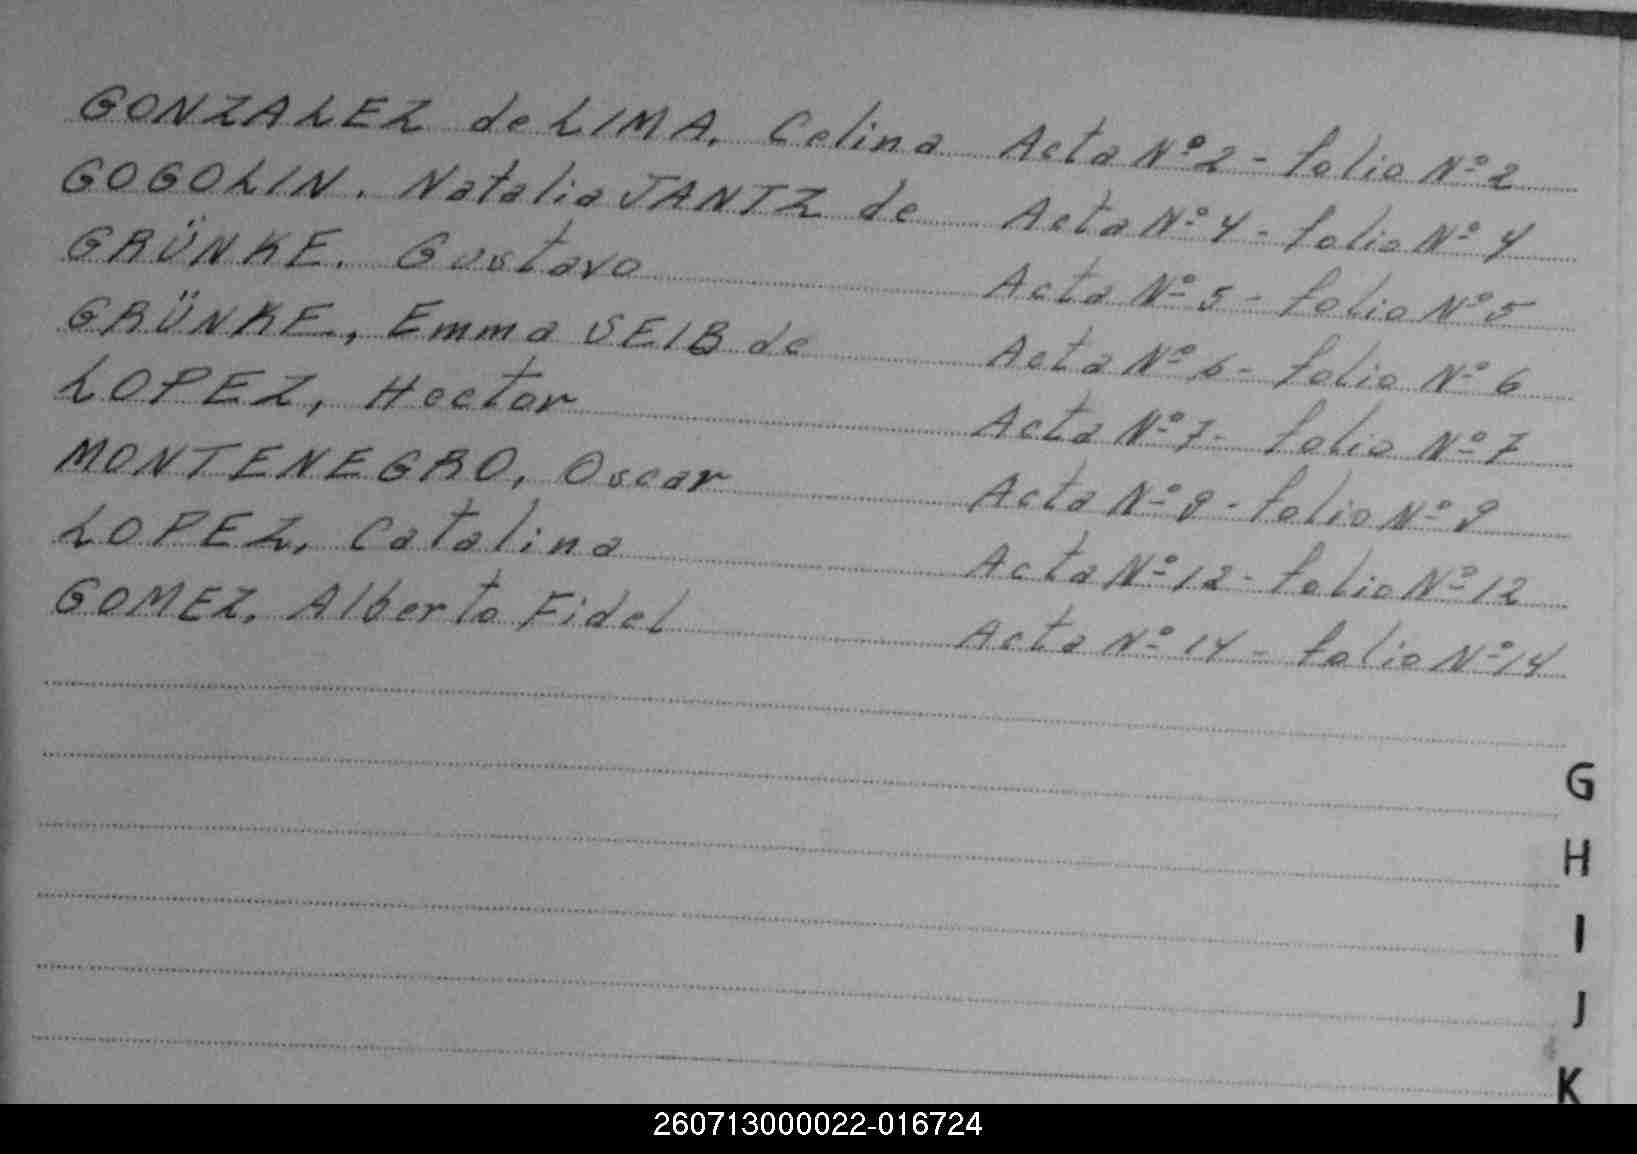 GONZALEZ de LIMA, Celina Acta Nº 2 - folio Nº 2
GOGOLIN, Natalia JANTZ de Acta Nº 4 - folio Nº 4
GRÜNKE, Gustavo Acta Nº 5 - folio Nº 5
GRÜNKE, Emma SEIB de Acta Nº 6 - folio Nº 6
LOPEZ, Hector Acta Nº 7 - folio Nº 7
MONTENEGRO, Oscar Acta Nº 9 - folio Nº 9
LOPEZ, Catalina Acta Nº 12 - folio Nº 12
GOMEZ, Alberto Fidel Acta Nº 14 - folio Nº 14
G
H
I
J
K
260713000022-016724